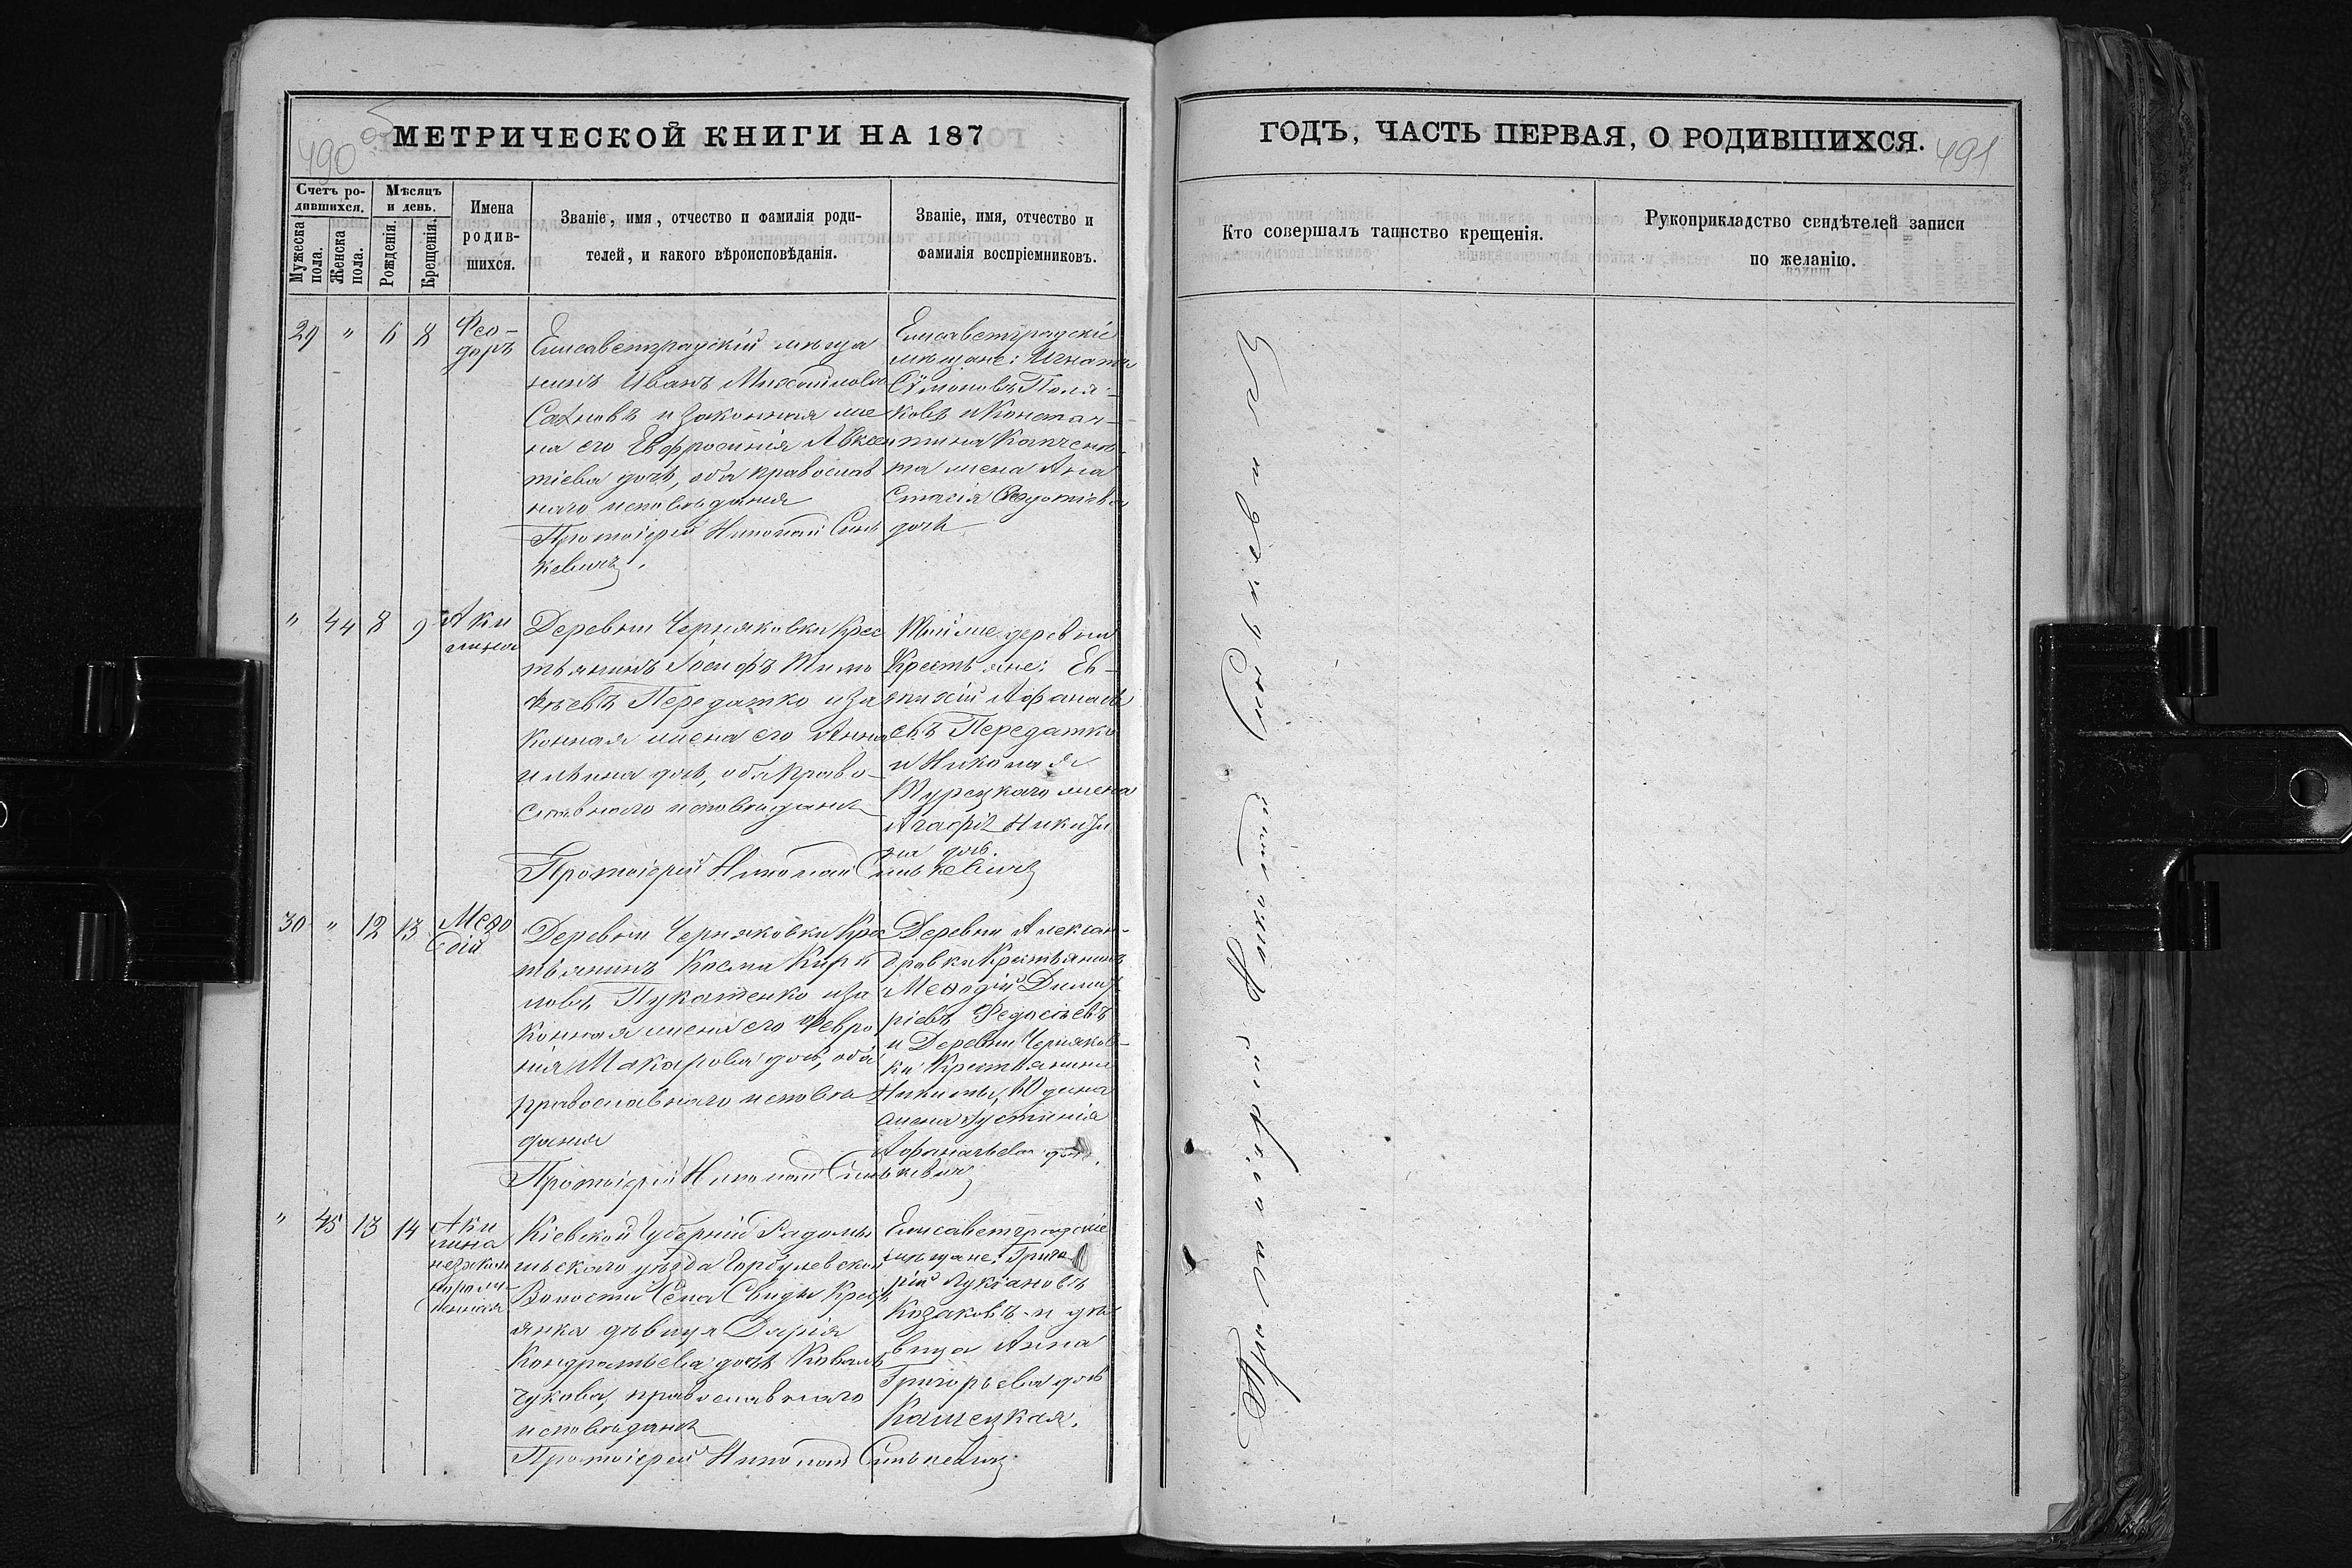 490 об
МЕТРИЧЕСКОЙ КНИГИ НА 187
Счетъ ро-
дившихся.
Мужеска
пола.
Женска
пола.
Мѣсяцъ
и день.
Рожденія.
Крещенія.
Имена
родив-
шихся.
Званіе, имя, отчество и фамилія роди-
телей, и какого вѣроисповѣданія.
Званіе, имя, отчество и
фамилія воспріемниковъ.
29 " 6 8
Фео-
доръ
Елисаветградскій мѣща
нинъ Иванъ Михайловъ
и законная же
на его Евфросинія Авксен
тіева дочь, оба православ
наго исповѣданія
Протоіерей Николай Синь
кевичъ.
Елисаветградскіе
мѣщане: Игнатъ
Сѵмоновъ Поля-
ковъ и Констан-
тина
жена Ана
стасія
дочь
" 44 8 9
Аки
лина
Деревни Черняковки Крес
тьянинъ Іосифъ Тимо
ѳеевъ Передатко и за
конная жена его Анна
Ильина дочь, оба право-
славнаго исповѣданія
Протоіерей Николай Синькевичъ
Той же деревни
Крестьяне: Ев-
тихій Афанась
евъ Передатко
и Николая
Турецкаго жена
Агафія Никити
на дочь.
30 " 12 13
Меѳо
дій
Деревни Черняковки Крес
тьянинъ Косма Кири
ловъ Пукатенко и за
конная жена его Февро
нія Макарова дочь, оба
православнаго исповѣ
данія
Протоіерей Николай Синькевичъ
Деревни Алексан-
дровки Крестьянинъ
Меѳодій Димит
ріевъ Федосіевъ
и Деревни Черняков-
ки Крестьянина
Никиты Юдина
жена Іустинія
Афанасьева дочь.
" 45 13 14
Аки
лина
незакон
норож-
денная
Кіевской Губерніи Радомы
шьскаго уѣзда Горбулевской
Волости Села Свиды Крест
янка дѣвица Дарія
Кондратьева дочь Коваль
чукова, православнаго
исповѣданія
Протоіерей Николай Синькевичъ
Елисаветградскіе
мѣщане: Григо
рій Лукіановъ
Козаковъ и дѣ
вица Анна
Григорьева дочь
Кашецкая.
ГОДЪ, ЧАСТЬ ПЕРВАЯ, О РОДИВШИХСЯ.
491
Кто совершалъ таинство крещенія.
Рукоприкладство свидѣтелей записи
по желанію.
Протоіерей Николай Синькевичъ